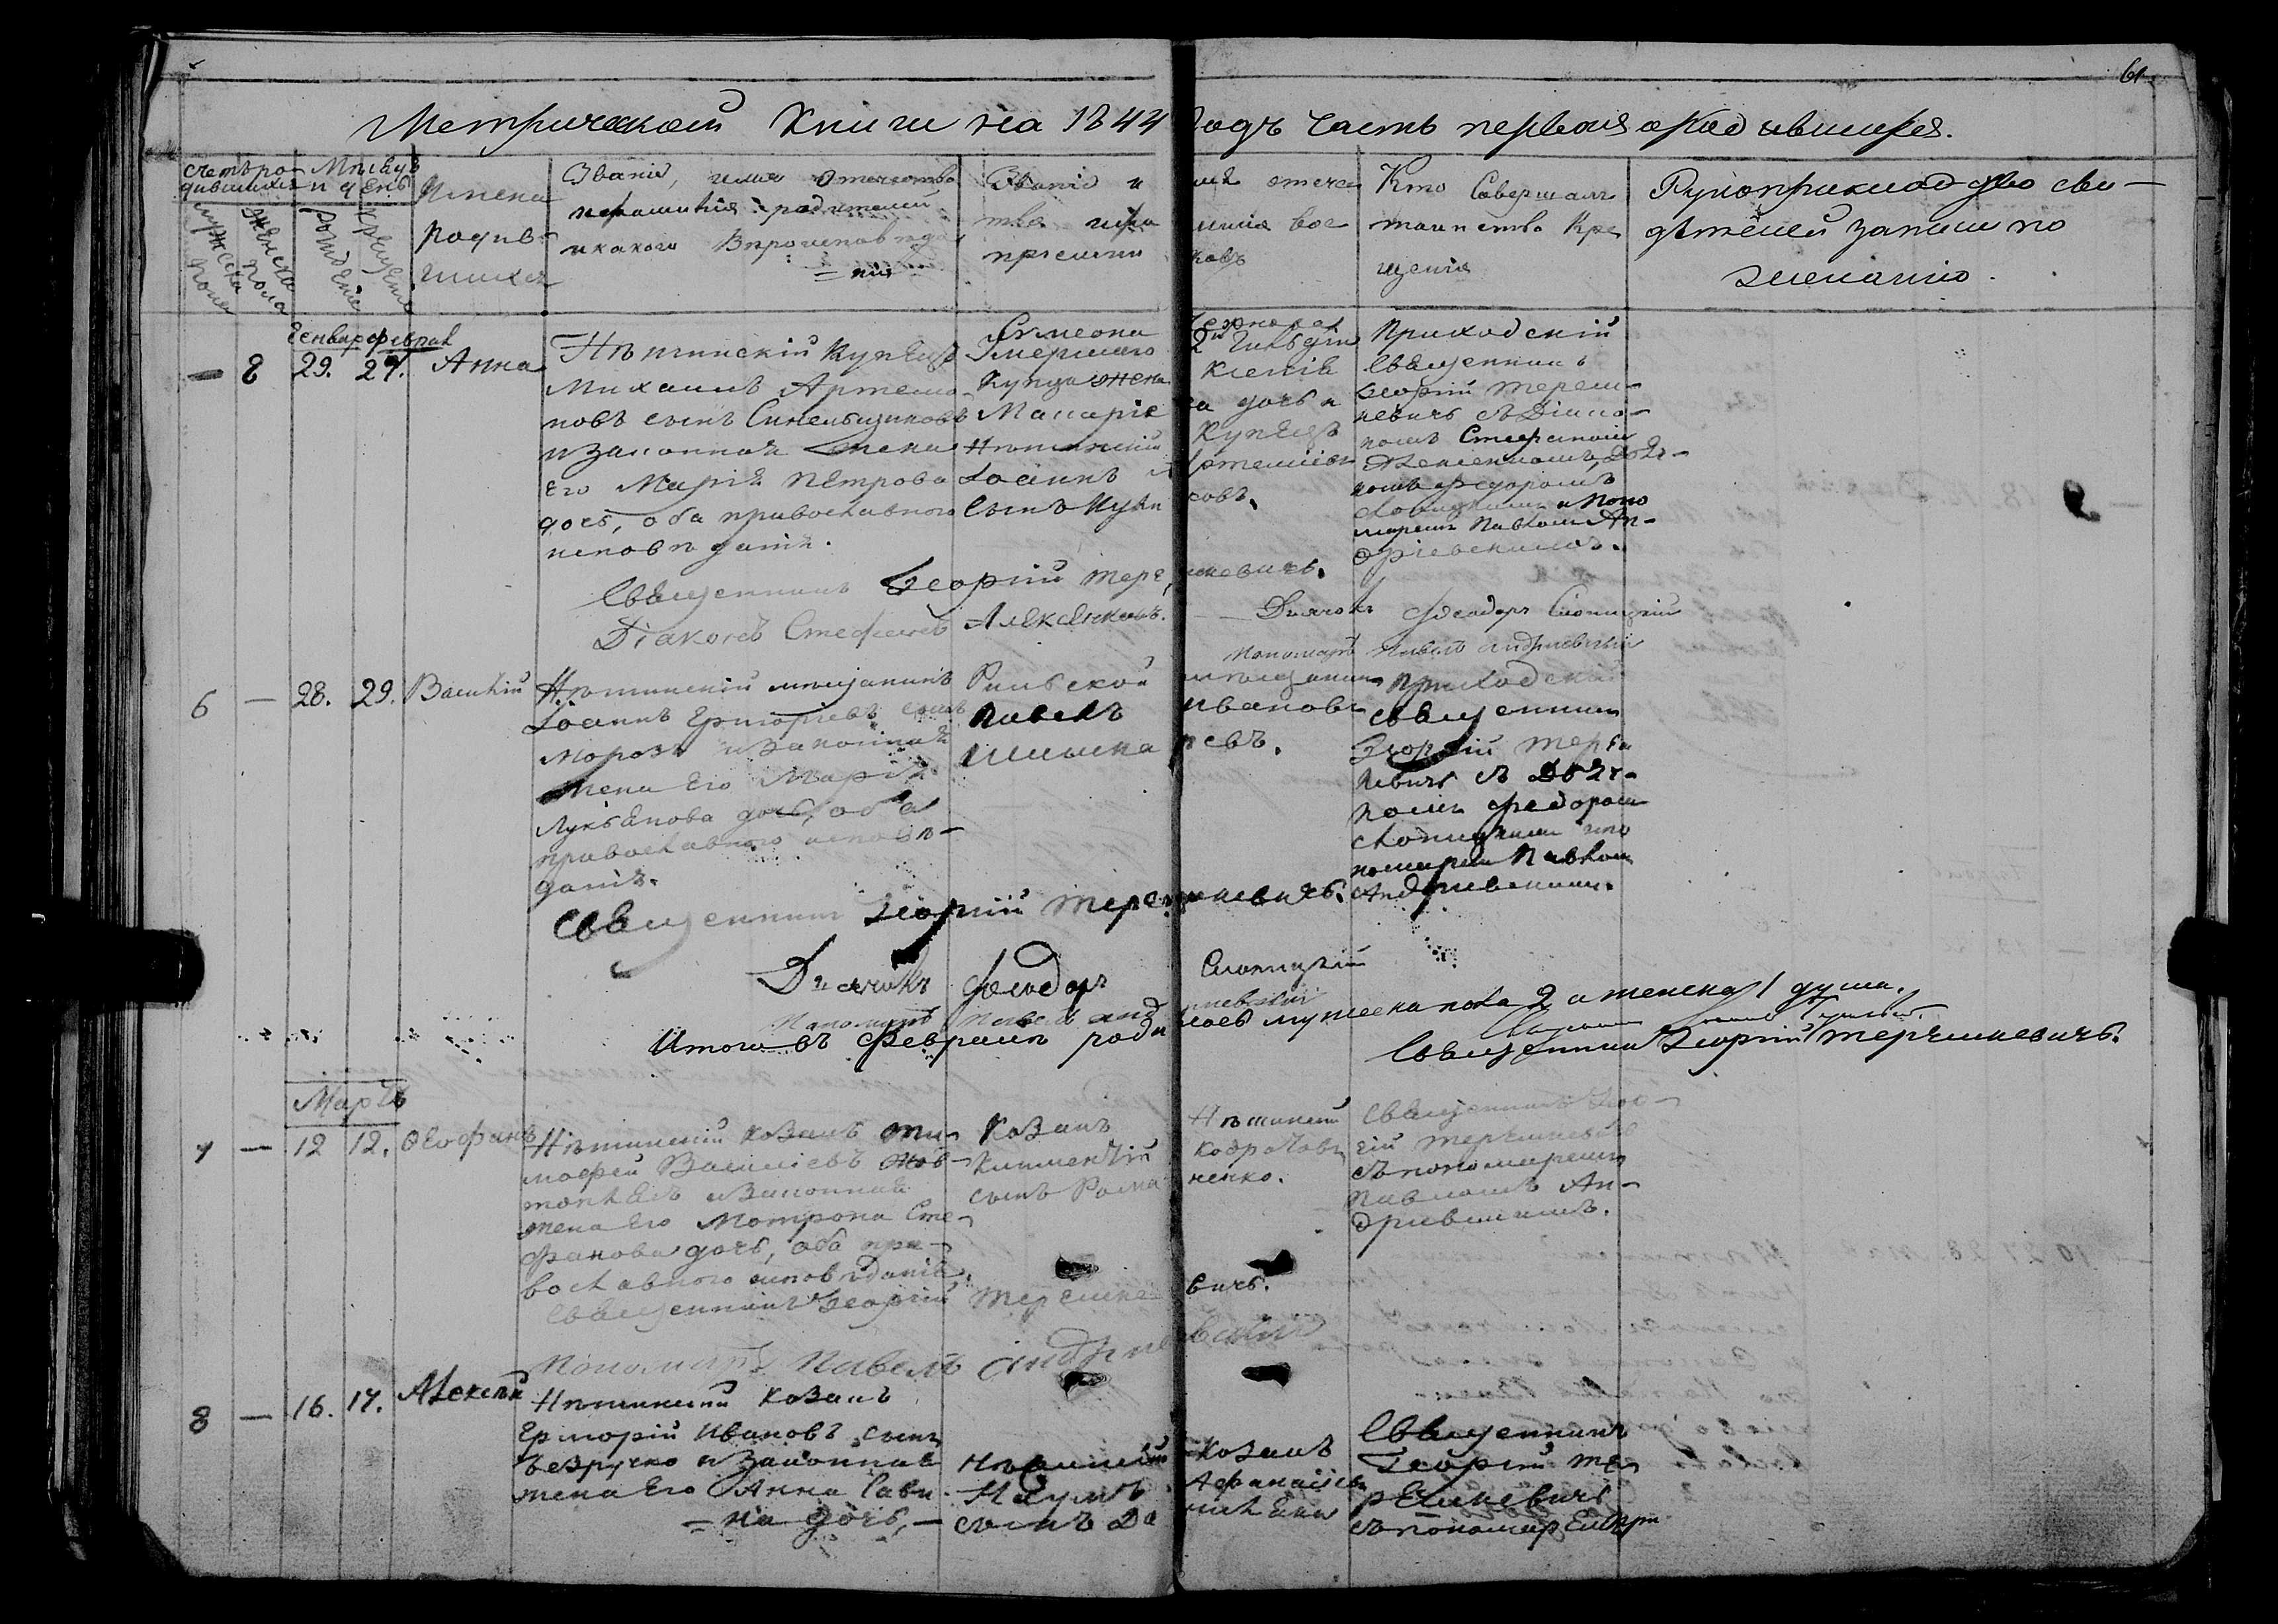 61.
Метрической Книги на 1844 Годъ Часть первая о родившихся.
Счетъ родившихся
Мѣсяцъ и день
Имена родившихся
Званіе, имя отечество и фамилія родители и какого Вѣроисповѣданія
Званіе имя отечество и фамилія воспріемниковъ
Кто Совершалъ таинство Крещенія
Рукоприкладство свидѣтелей записи по желанію.
мужеска пола
женска пола
рожденія
крещенія
Генвар Феврал
— 8 29. 27. Анна
Нѣжинскій Купецъ
Михаилъ Артемо-
новъ сынъ Синельщиковъ
и законная жена
Его Марія Петрова
дочь, оба православного
исповѣданія.
Умершаго 2й Гильдіи
Купца жена Ксенія
Симеона
дочь и
Нѣжинскій Купецъ
Іоаннъ
сынъ
Приходскій
Священникъ
Георгій Тереш-
кевичъ съ Діако-
номъ Стефаномъ
Алексенкомъ, Дьяч-
комъ Федоромъ
Слоницкимъ и Поно
маремъ Павломъ Ан-
дріевскимъ.
Священникъ Георгій Терешкевичъ.
Діаконъ Стефанъ Алексенковъ.
Дьячокъ Феодоръ Слоницкій
Пономарь Павелъ Андріевскій
6 — 28. 29. Василій
Нѣжинскій мѣщанинъ
Іоаннъ Григорьевъ сынъ
Морозъ и законная
жена Его Марія
Лукьянова дочь, оба
православного исповѣ-
данія.
Рыльской мѣщанинъ
Павелъ Ивановъ
Шишкаревъ.
Приходскій
Священникъ
Георгій Тереш
кевичъ съ Дьяч-
комъ Федоромъ
Слоницкимъ и по
номаремъ Павломъ
Андріевскимъ.
Священникъ Георгій Терешкевичъ.
Дьячокъ Феодоръ Слоницкій
Пономарь Павелъ Андріевскій
Итого въ Февралѣ родилось мужеска пола 2 а женска 1 душа.
Священникъ Георгій Терешкевичъ.
Мартъ
7 — 12 12. Ѳеофанъ
Нѣжинскій козакъ Ти-
мофей Василіевъ Жов-
и законная
жена Его Мотрона Сте-
фанова дочь, оба пра-
вославного исповѣданія.
Нѣжинскій Козакъ
Климентій Кодратовъ
сынъ Романенко.
Священникъ Геор-
гій Терешкевичъ
съ пономаремъ
Павломъ Ан-
дріевскимъ.
Священникъ Георгій Терешкевичъ.
Пономарь Павелъ Андріевскій
8 — 16. 17. Алексѣй
Нѣжинскій козакъ
Григорій Ивановъ сынъ
Безручко и законная
жена Его Анна Сави-
на дочь,
Нѣжинскій козакъ
Наумъ Афанасіевъ
сынъ
Священникъ
Георгій Те-
решкевичъ
съ пономаремъ